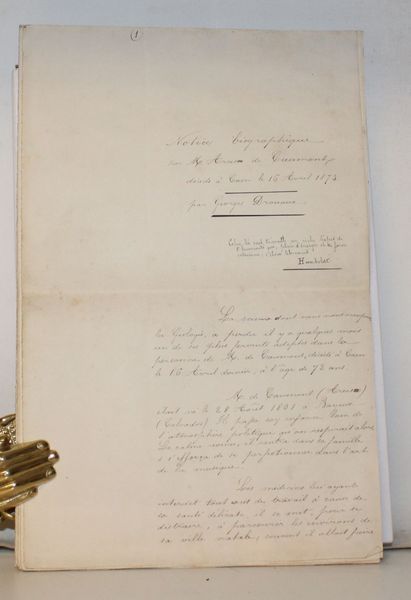 1
Notice biographique
sur Mr Arcisse de Caumont,
décédé à Caen le 16 Avril 1873
par Georges Drouaux
Humboldt
La science dont nous nous occupons,
la Géologie, a perdu il y a quelques mois
un de ses plus fervents adeptes dans la
personne de M. de Caumont, décédé à Caen
le 16 Avril dernier, à l'âge de 72 ans.
M. de Caumont (Arcisse)
était né le 28 Août 1801 à Bayeux
(Calvados). Il passa son enfance loin de
l'atmosphère politique qu'on respirait alors.
il rentra dans sa famille
et s'efforça de se perfectionner dans l'art
de la musique.
Les médecins lui ayant
interdit tout sont de travail à cause de
sa santé délicate, il se met, pour se
distraire, à parcourir les environs de
sa ville natale, comme il allait faire